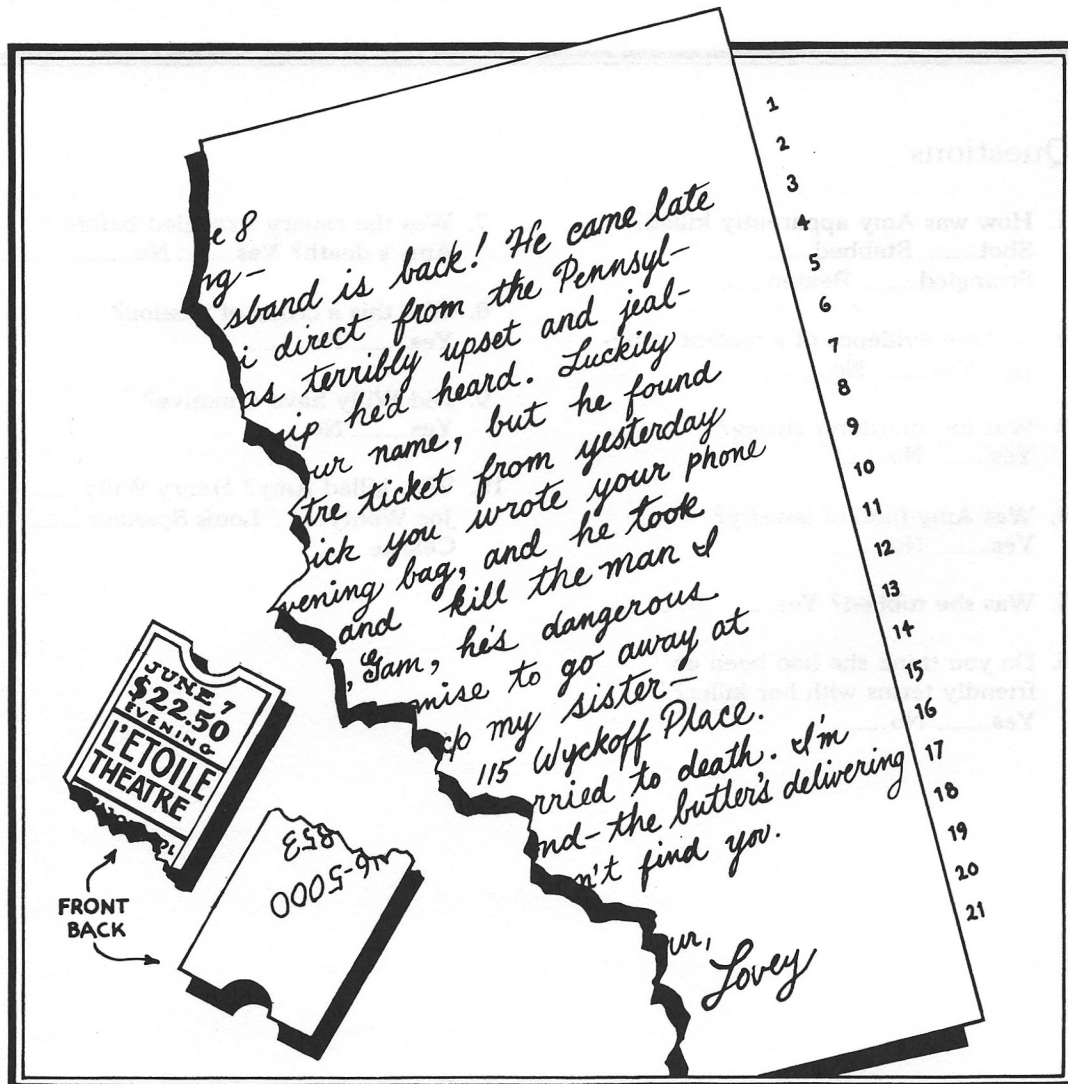 e 8
ng-
sband is back! He came late
i direct from the Pennsyl-
as terribly upset and jeal-
sip he'd heard. Luckily
ur name, but he found
tre ticket from yesterday
ick you wrote your phone
vening bag, and he took
and kill the man I
, Sam, he's dangerous
mise to go away at
c/o my sister—
115 Wyckoff Place.
rried to death. I'm
nd—the butler's delivering
n't find you.
ur,
Lovey
1
2
3
4
5
6
7
8
9
10
11
12
13
14
15
16
17
18
19
20
21
JUNE 7
$22.50
EVENING
L'ETOILE
THEATRE
6-5000
853
FRONT
BACK